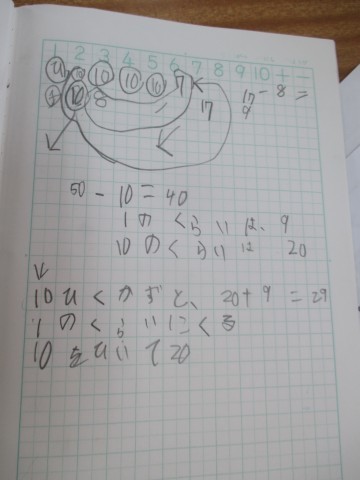 1 2 3 4 5 6 7 8 9 10 + -
10 10 10 7
8 17 17 - 8 =
9
50 - 10 = 40
1のくらいは、9
10のくらいは 20
10ひくかずと、20+9=29
1のくらいにくる
10をひいて20